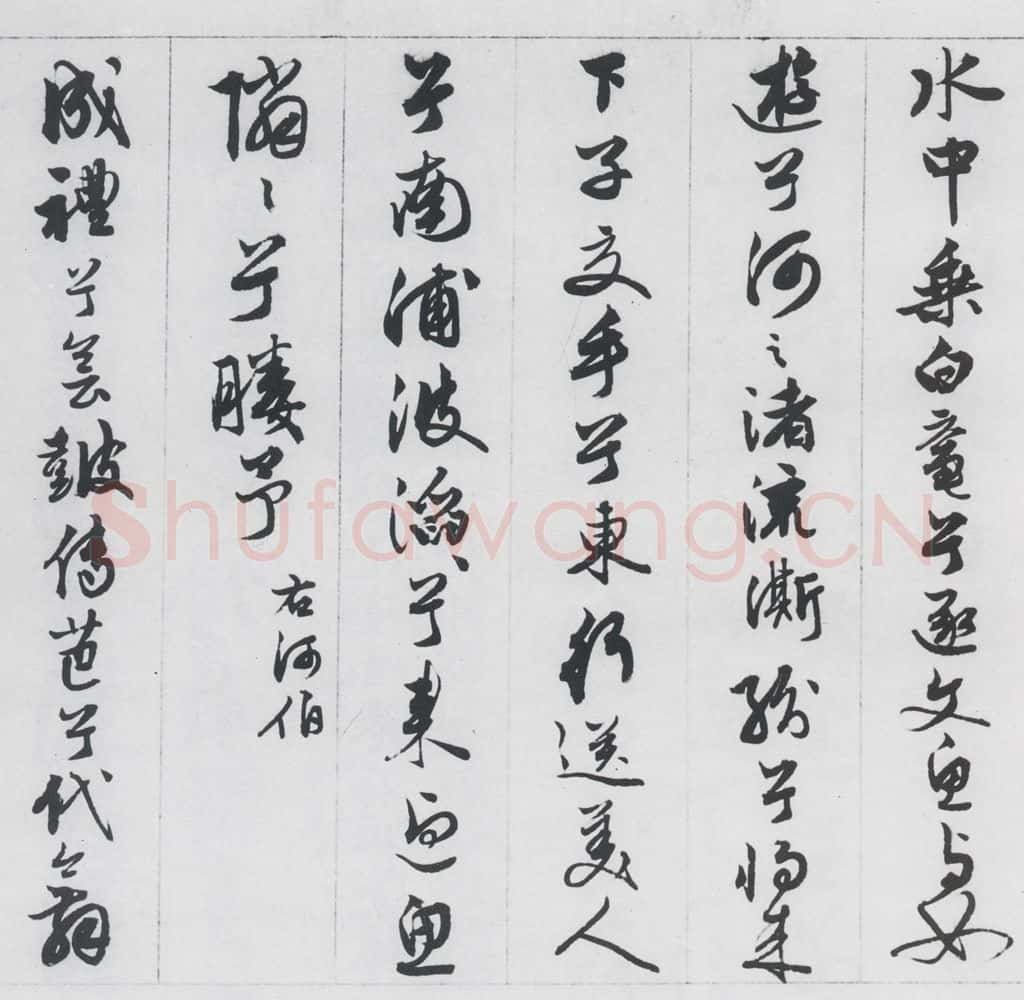 水中乘白黿兮逐文魚与女
遊兮河之渚流澌紛兮將來
下子交手兮東行送美人
兮南浦波滔〻兮來迎魚
隣〻兮媵予
右河伯
成禮兮會皷傳芭兮代舞
Shufawang.CN